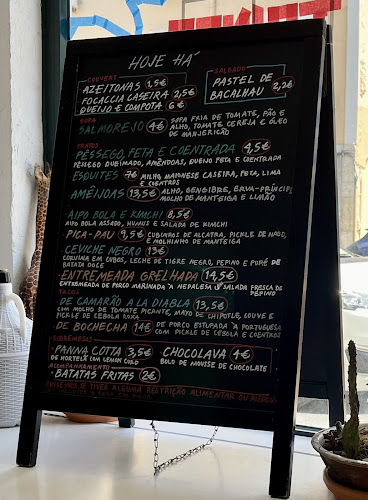 HOJE HÁ
COUVERT
AZEITONAS 1,5€
FOCACCIA CASEIRA 2,5€
QUEIJO E COMPOTA 6€
SALGADO
PASTEL DE
BACALHAU 2,2€
SOPA
SALMOREJO 4€ SOPA FRIA DE TOMATE, PÃO E
ALHO, TOMATE CEREJA E ÓLEO
DE MANJERICÃO
PRATOS
PÊSSEGO, FETA E COENTRADA 4,5€
PÊSSEGO QUEIMADO, AMÊNDOAS, QUEIJO FETA E COENTRADA
ESQUITES 7€ MILHO, MAIONESE CASEIRA, FETA, LIMA
E COENTROS
AMÊIJOAS 13,5€ ALHO, GENGIBRE, ERVA-PRÍNCIPE,
MOLHO DE MANTEIGA E LIMÃO
AIPO BOLA E KIMCHI 8,5€
AIPO BOLA ASSADO, HUMUS E SALADA DE KIMCHI
PICA-PAU 9,5€ CUBINHOS DE ALCATRA, PICKLE DE NABO,
E MOLHINHO DE MANTEIGA
CEVICHE NEGRO 13€
CORVINA EM CUBOS, LECHE DE TIGRE NEGRO, PEPINO E PURÉ DE
BATATA DOCE
ENTREMEADA GRELHADA 14,5€
ENTREMEADA DE PORCO MARINADA À NEPALESA E SALADA FRESCA DE
PEPINO
TACOS
DE CAMARÃO A LA DIABLA 13,5€
COM MOLHO DE TOMATE PICANTE, MAYO DE CHIPOTLE, COUVE E
PICKLE DE CEBOLA ROXA
DE BOCHECHA 14€ DE PORCO ESTUFADA À PORTUGUESA
COM PICKLE DE CEBOLA E COENTROS
SOBREMESAS
PANNA COTTA 3,5€ CHOCOLAVA 4€
DE HORTELÃ COM LEMON CURD BOLO DE MOUSSE DE CHOCOLATE
ACOMPANHAMENTO
BATATAS FRITAS 2€
AVISE-NOS SE TIVER ALGUMA RESTRIÇÃO ALIMENTAR OU ALERGIA